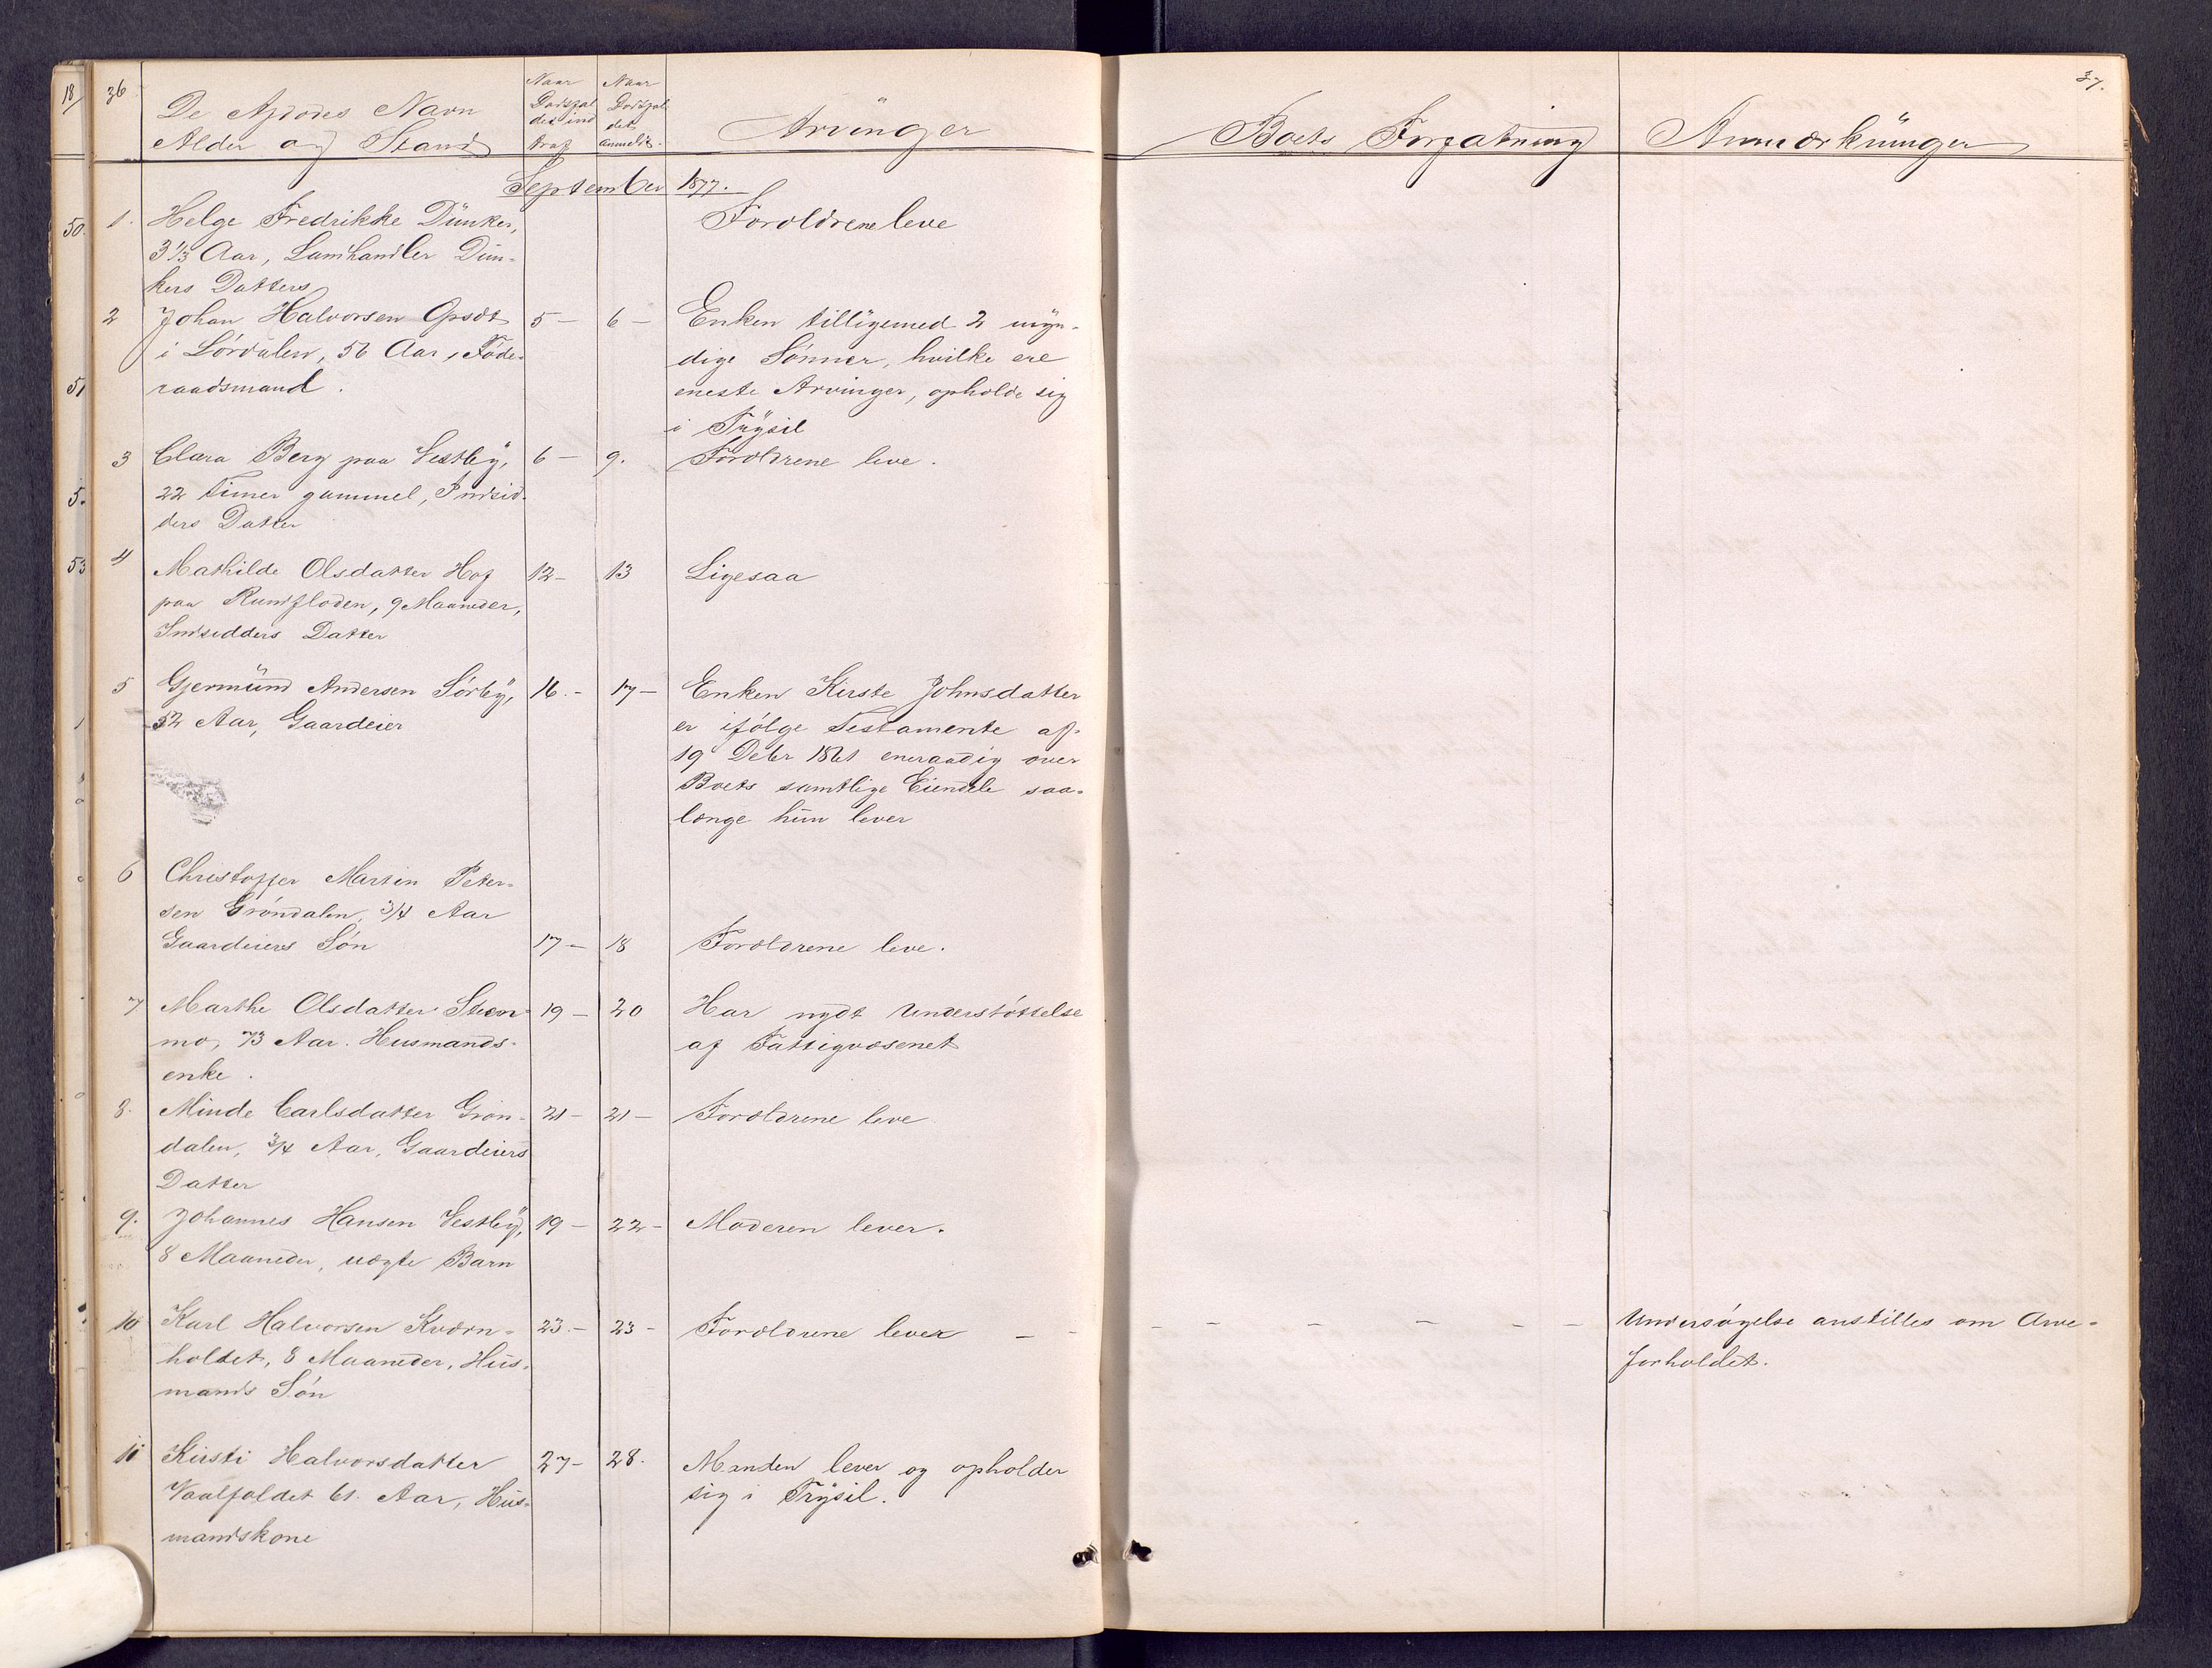 36
De Afdødes Navn
Alder og Stand
Naar
Dødsfal
det ind
traf
Naar
Dødsfal
det
anmeldt.
Arvinger
Boets Forfatning
Anmærkninger
37.
September 1877.
1. Helge Fredrikke Dunker,
3 1/3 Aar, Landhandler Dun-
kers Datters
Forældrene leve
2 Johan Halvorsen Opsæt
i Lørdalen, 56 Aar, Føde-
raadsmand.
5 - 6 -
Enken tilligemed 2 myn-
dige Sønner, hvilke ere
eneste Arvinger, opholde sig
i Trysil
3 Clara Berg paa Vestby,
22 Timer gammel, Indsid-
ders Datter
6 - 9.
Forældrene leve.
4 Mathilde Olsdatter Hof
paa Rundfloden, 9 Maaneder,
Indsidders Datter
12 - 13
Ligesaa
5 Gjermund Andersen Sørby,
52 Aar, Gaardeier
16. - 17 -
Enken Kirste Johnsdatter
er ifølge Testamente af
19 Debr 1861 eneraadig over
Boets samtlige Eiendele saa-
længe hun lever
6 Christoffer Martin Peter-
sen Grøndalen, 3/4 Aar
Gaardeiers Søn
17 - 18
Forældrene leve.
7 Marthe Olsdatter
mo, 73 Aar. Husmands-
enke.
19 - 20
Har nydt Understøttelse
af Fattigvæsenet
8. Minde Carlsdatter Grøn-
dalen, 3/4 Aar, Gaardeiers
Datter
21 - 21 -
Forældrene leve
9. Johannes Hansen Vestby,
8 Maaneder, uægte Barn
19 - 22 -
Moderen lever.
10 Karl Halvorsen Kværn-
holdet, 8 Maaneder, Hus-
mands Søn
23. - 23 -
Forældrene lever - - - - - - - -
Undersøgelse anstilles om Arve-
forholdet.
11 Kirsti Halvorsdatter
Vaalfaldet 61. Aar, Hus-
mandskone
27 - 28.
Manden lever og opholder
sig i Trysil.
18
50.
51
5.
53